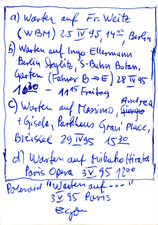 a) Warten auf Fr. Weitz
(WBM) 25 IV 95, 14⁰⁰ Berlin
b) Warten auf Ingo Ellermann
Berlin Steglitz, S-Bahn Botan.
Garten (Fahrer B → E) 28 IV 95
10³⁰ – 11¹⁵ Freitag
c) Warten auf Massimo, Giorgio Andrea
+ Gisela, Parkhaus Grand Place,
Brüssel 29 IV 95 15³⁰
d) Warten auf Mikuho Hirota
Paris Opera 3 V 95 12⁰⁰
Polaroid "Warten auf ..."
3 V 95 Paris